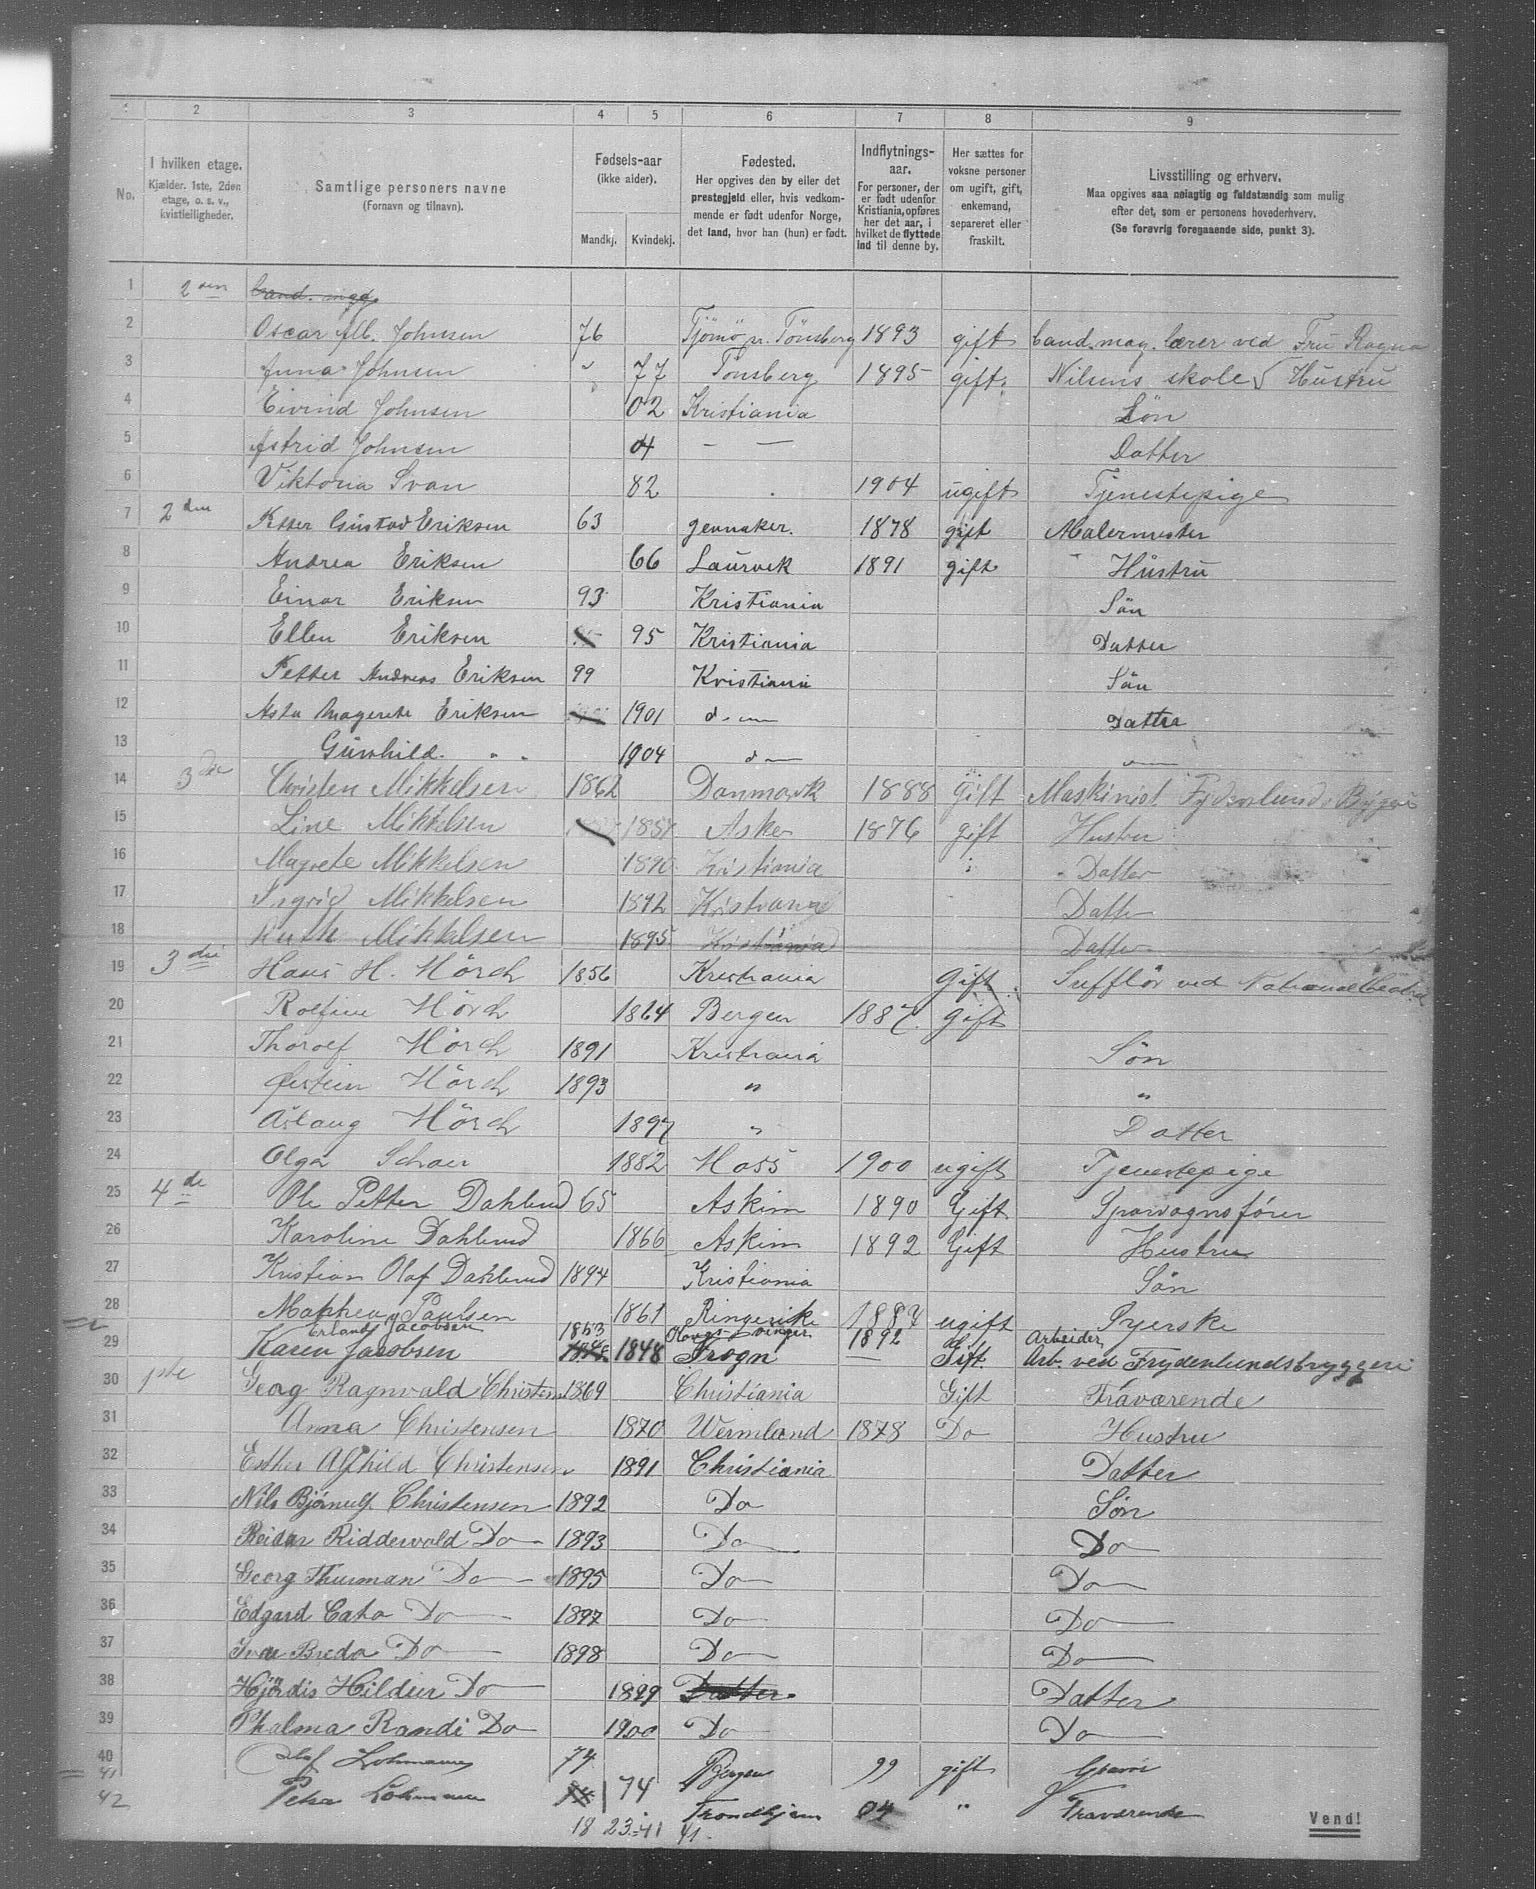 1 2 3 4 5 6 7 8 9
No.
I hvilken etage. Kjælder. 1ste, 2den etage, o. s. v., kvistleiligheder.
Samtlige personers navne (Fornavn og tilnavn).
Fødsels-aar (ikke alder). Mandkj. Kvindekj.
Fødested. Her opgives den by eller det prestegjeld eller, hvis vedkommende er født udenfor Norge, det land, hvor han (hun) er født.
Indflytnings-aar. For personer, der er født udenfor Kristiania, opføres her det aar, i hvilket de flyttede ind til denne by.
Her sættes for voksne personer om ugift, gift, enkemand, separeret eller fraskilt.
Livsstilling og erhverv. Maa opgives saa nøiagtig og fuldstændig som mulig efter det, som er personens hovederhverv. (Se forøvrig foregaaende side, punkt 3).
1 2den
2 Oscar Alb. Johnsen 76 Tjømø n. Tønsberg 1893 gift cand. mag. lærer ved Fru Ragna
3 Anna Johnsen 77 Tønsberg 1895 gift. Nilsens skole Hustru
4 Eivind Johnsen 02 Kristiania Søn
5 Astrid Johnsen 04 — — Datter
6 Viktoria Svan 82 1904 ugift Tjenestepige
7 2den Petter Gustav Eriksen 63 Jevnaker. 1878 gift Malermester
8 Andrea Eriksen 66 Laurvik 1891 gift Hustru
9 Einar Eriksen 93 Kristiania Sön
10 Ellen Eriksen 95 Kristiania Datter
11 Petter Andreas Eriksen 99 Kristiania Sön
12 Asta Magrete Eriksen 1901 d. — Datter
13 Gunhild. " " 1904 d — —
14 3die Christen Mikkelsen 1862 Danmark 1888 Gift Maskinist Frydenlunds Bryggeri
15 Line Mikkelsen Asker 1876 gift Hustru
16 Magrete Mikkelsen 1890 Kristiania Datter
17 Sigrid Mikkelsen 1892 Kristiania Datter
18 Ruth Mikkelsen 1895 Kristiania Datter
19 3die Hans H. Mörch 1856 Kristiania Gift Sufflör ved Nationaltheatret
20 Rolfine Mörch 1864 Bergen 1887. Gift
21 Thorolf Mörch 1891 Kristiania Sön
22 Øistein Mörch 1893 " "
23 Aslaug Mörch 1897 " Datter
24 Olga 1882 Moss 1900 ugift Tjenestepige
25 4de Ole Petter Dahlund 65 Askim 1890 Gift Sporvognsfører
26 Karoline Dahlund 1866 Askim 1892 Gift Hustru
27 Kristian Olaf Dahlund 1894 Kristiania Sön
28 Mathea Paulsen 1861 Ringerike 1887 ugift Syerske
Erland Jacobsen 1853 Kongsvinger 1892 d. Arbeider
29 Karen Jacobsen 1848 Frogn — Gift. Arb. ved Frydenlundsbryggeri
30 1ste Georg Ragnvald Christensen 1869 Christiania Gift Fraværende
31 Anna Christensen 1870 Wermland 1878 Do Hustru
32 Esther Alfhild Christensen 1891 Christiania Datter
33 Nils Bjørnulf Christensen 1892 Do Søn
34 Reidar Ridderwold Do 1893 Do Do
35 Georg Thurman Do 1895 Do Do
36 Edgard Cato Do 1897 Do Do
37 Ivar Breda Do 1898 Do Do
38 Hjørdis Hildur Do 1899 Datter. Datter
39 Thalma Randi Do 1900 Do Do
40 Olaf Lohmann 74 Bergen 99 gift
41
42 Petra Lohmann 74 Trondhjem 04 " Fraværende
18 23 = 41 41.
Vend!